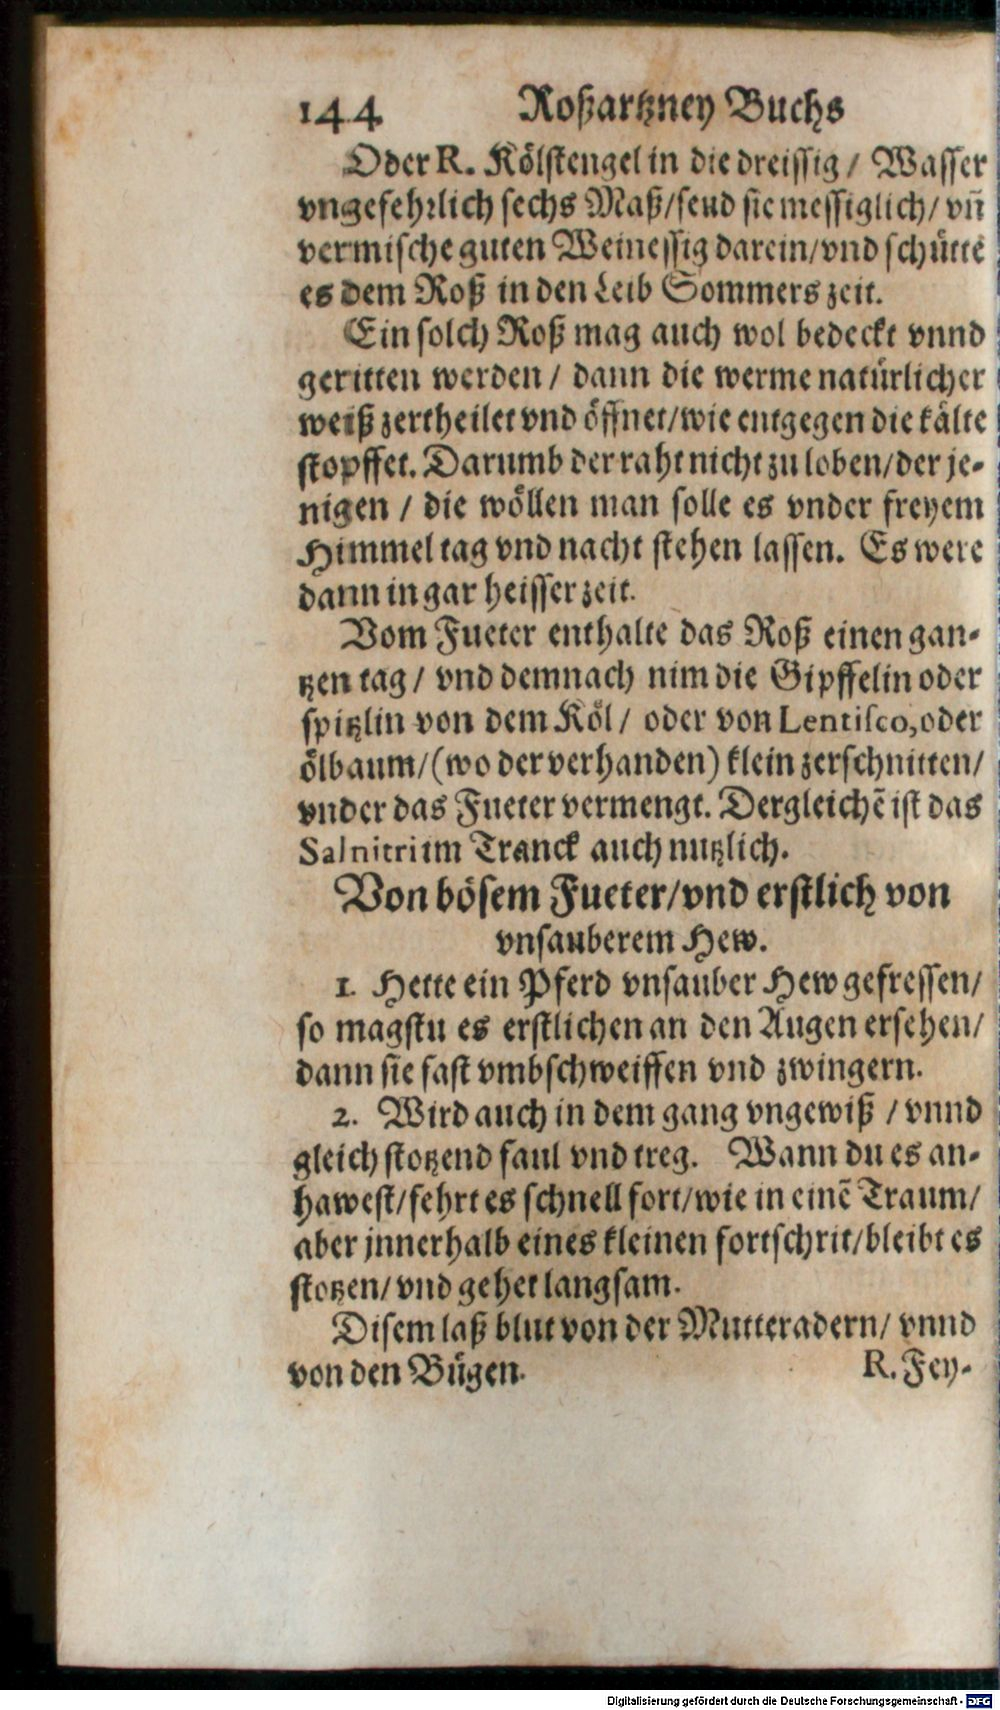 144 Roßartzney Buchs
Oder R. Kölstengel in die dreissig / Wasser
vngefehrlich sechs Maß/seud sie messiglich/ vn̄
vermische guten Weinessig darein/vnd schütte
es dem Roß in den Leib Sommers zeit.
Ein solch Roß mag auch wol bedeckt vnnd
geritten werden / dann die werme natürlicher
weiß zertheilet vnd öffnet/wie entgegen die kälte
stopffet. Darumb der raht nicht zu loben/der je-
nigen / die wöllen man solle es vnder freyem
Himmel tag vnd nacht stehen lassen. Es were
dann in gar heisser zeit.
Vom Fueter enthalte das Roß einen gan-
tzen tag / vnd demnach nim die Gipffelin oder
spitzlin von dem Köl / oder von Lentisco,oder
ölbaum/(wo der verhanden) klein zerschnitten/
vnder das Fueter vermengt. Dergleichē ist das
Salnitrium Tranck auch nutzlich.
Von bösem Fueter/vnd erstlich von
vnsauberem Hew.
1. Hette ein Pferd vnsauber Hew gefressen/
so magstu es erstlichen an den Augen ersehen/
dann sie fast vmbschweiffen vnd zwingern.
2. Wird auch in dem gang vngewiß / vnnd
gleich stotzend faul vnd treg. Wann du es an-
hawest/fehrt es schnell fort/wie in einē Traum/
aber jnnerhalb eines kleinen fortschrit/bleibt es
stotzen/ vnd gehet langsam.
Disem laß blut von der Mutteradern/ vnnd
von den Bügen. R. Fey-
Digitalisierung gefördert durch die Deutsche Forschungsgemeinschaft - DFG